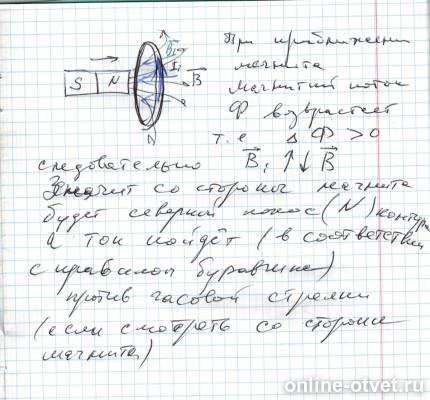 При приближении
магнита
S N B₁ I₁ B⃗
магнитный поток
Ф возрастает
N
т.е Δ Ф > 0
следовательно B⃗₁ ↑↓ B⃗
Значит со стороны магнита
будет северный полюс (N) контура
а ток пойдёт (в соответствии
с правилом буравчика)
против часовой стрелки
(если смотреть со стороны
магнита)
online-otvet.ru